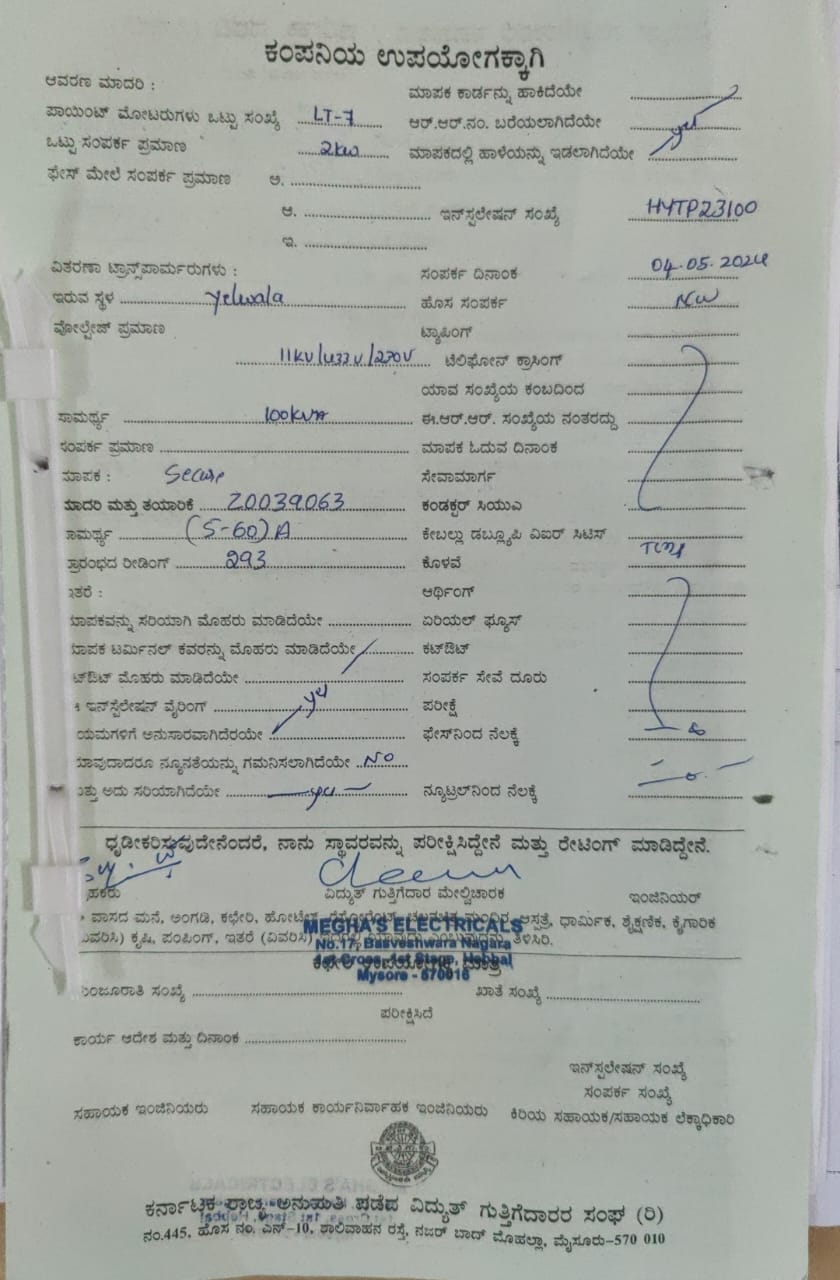 ಕಂಪನಿಯ ಉಪಯೋಗಕ್ಕಾಗಿ
ಆವರಣ ಮಾದರಿ : ಮಾಪಕ ಕಾರ್ಡನ್ನು ಹಾಕಿದೆಯೇ
ಪಾಯಿಂಟ್ ಮೋಟರುಗಳು ಒಟ್ಟು ಸಂಖ್ಯೆ LT-7 ಆರ್.ಆರ್.ನಂ. ಬರೆಯಲಾಗಿದೆಯೇ yes
ಒಟ್ಟು ಸಂಪರ್ಕ ಪ್ರಮಾಣ 2kw ಮಾಪಕದಲ್ಲಿ ಹಾಳೆಯನ್ನು ಇಡಲಾಗಿದೆಯೇ
ಫೇಸ್ ಮೇಲೆ ಸಂಪರ್ಕ ಪ್ರಮಾಣ ಅ.
ಆ. ಇನ್‌ಸ್ಪಲೇಷನ್ ಸಂಖ್ಯೆ HYTP23100
ಇ.
ವಿತರಣಾ ಟ್ರಾನ್ಸ್‌ಪಾರ್ಮರುಗಳು : ಸಂಪರ್ಕ ದಿನಾಂಕ 04.05.2024
ಇರುವ ಸ್ಥಳ Yelwala ಹೊಸ ಸಂಪರ್ಕ
ವೋಲ್ಟೇಜ್ ಪ್ರಮಾಣ ಟ್ಯಾಪಿಂಗ್
11KV/433V/230V ಟೆಲಿಫೋನ್ ಕ್ರಾಸಿಂಗ್
ಯಾವ ಸಂಖ್ಯೆಯ ಕಂಬದಿಂದ
ಸಾಮರ್ಥ್ಯ 100kVA ಈ.ಆರ್.ಆರ್. ಸಂಖ್ಯೆಯ ನಂತರದ್ದು
ಸಂಪರ್ಕ ಪ್ರಮಾಣ ಮಾಪಕ ಓದುವ ದಿನಾಂಕ
ಮಾಪಕ : Secure ಸೇವಾಮಾರ್ಗ
ಮಾದರಿ ಮತ್ತು ತಯಾರಿಕೆ 20039063 ಕಂಡಕ್ಟರ್ ಸಿಯುಎ
ಸಾಮರ್ಥ್ಯ (5-60)A ಕೇಬಲ್ಲು ಡಬ್ಲ್ಯೂಪಿ ವಿಐರ್ ಸಿಟಿಸ್
ಪ್ರಾರಂಭದ ರೀಡಿಂಗ್ 293 ಕೊಳವೆ
ಇತರೆ : ಆರ್ಥಿಂಗ್
ಮಾಪಕವನ್ನು ಸರಿಯಾಗಿ ಮೊಹರು ಮಾಡಿದೆಯೇ ಏರಿಯಲ್ ಫ್ಯೂಸ್
ಮಾಪಕ ಟರ್ಮಿನಲ್ ಕವರನ್ನು ಮೊಹರು ಮಾಡಿದೆಯೇ ಕಟ್‌ಔಟ್
ಕಟ್‌ಔಟ್ ಮೊಹರು ಮಾಡಿದೆಯೇ ಸಂಪರ್ಕ ಸೇವೆ ದೂರು
ಇನ್‌ಸ್ಪಲೇಷನ್ ವೈರಿಂಗ್ yes ಪರೀಕ್ಷೆ
ನಿಯಮಗಳಿಗೆ ಅನುಸಾರವಾಗಿದೆರಯೇ ಫೇಸ್‌ನಿಂದ ನೆಲಕ್ಕೆ
ಯಾವುದಾದರೂ ನ್ಯೂನತೆಯನ್ನು ಗಮನಿಸಲಾಗಿದೆಯೇ NO
ಮತ್ತು ಅದು ಸರಿಯಾಗಿದೆಯೇ yes ನ್ಯೂಟ್ರಲ್‌ನಿಂದ ನೆಲಕ್ಕೆ
ಧೃಡೀಕರಿಸುವುದೇನೆಂದರೆ, ನಾನು ಸ್ಥಾವರವನ್ನು ಪರೀಕ್ಷಿಸಿದ್ದೇನೆ ಮತ್ತು ರೇಟಿಂಗ್ ಮಾಡಿದ್ದೇನೆ.
ಗ್ರಾಹಕರು ವಿದ್ಯುತ್ ಗುತ್ತಿಗೆದಾರ ಮೇಲ್ವಿಚಾರಕ ಇಂಜಿನಿಯರ್
ವಾಸದ ಮನೆ, ಅಂಗಡಿ, ಕಛೇರಿ, ಹೋಟೆಲ್, ಆಸ್ಪತ್ರೆ, ಧಾರ್ಮಿಕ, ಶೈಕ್ಷಣಿಕ, ಕೈಗಾರಿಕ
(ವಿವರಿಸಿ) ಕೃಷಿ, ಪಂಪಿಂಗ್, ಇತರೆ (ವಿವರಿಸಿ) ತಿಳಿಸಿರಿ.
MEGHA'S ELECTRICALS
No.17, Basveshwara Nagara
1st Cross, 1st Stage, Hebbal
Mysore - 570016
ಕಛೇರಿ ಉಪಯೋಗಕ್ಕೆ ಮಾತ್ರ
ಮಂಜೂರಾತಿ ಸಂಖ್ಯೆ ಖಾತೆ ಸಂಖ್ಯೆ
ಪರೀಕ್ಷಿಸಿದೆ
ಕಾರ್ಯ ಆದೇಶ ಮತ್ತು ದಿನಾಂಕ
ಇನ್‌ಸ್ಪಲೇಷನ್ ಸಂಖ್ಯೆ
ಸಂಪರ್ಕ ಸಂಖ್ಯೆ
ಸಹಾಯಕ ಇಂಜಿನಿಯರು ಸಹಾಯಕ ಕಾರ್ಯನಿರ್ವಾಹಕ ಇಂಜಿನಿಯರು ಕಿರಿಯ ಸಹಾಯಕ/ಸಹಾಯಕ ಲೆಕ್ಕಾಧಿಕಾರಿ
ಕರ್ನಾಟಕ ರಾಜ್ಯ ಅನುಮತಿ ಪಡೆದ ವಿದ್ಯುತ್ ಗುತ್ತಿಗೆದಾರರ ಸಂಘ (ರಿ)
ನಂ.445, ಹೊಸ ನಂ. ಎನ್-10, ಶಾಲಿವಾಹನ ರಸ್ತೆ, ನಜರ್ ಬಾದ್ ಮೊಹಲ್ಲಾ, ಮೈಸೂರು-570 010